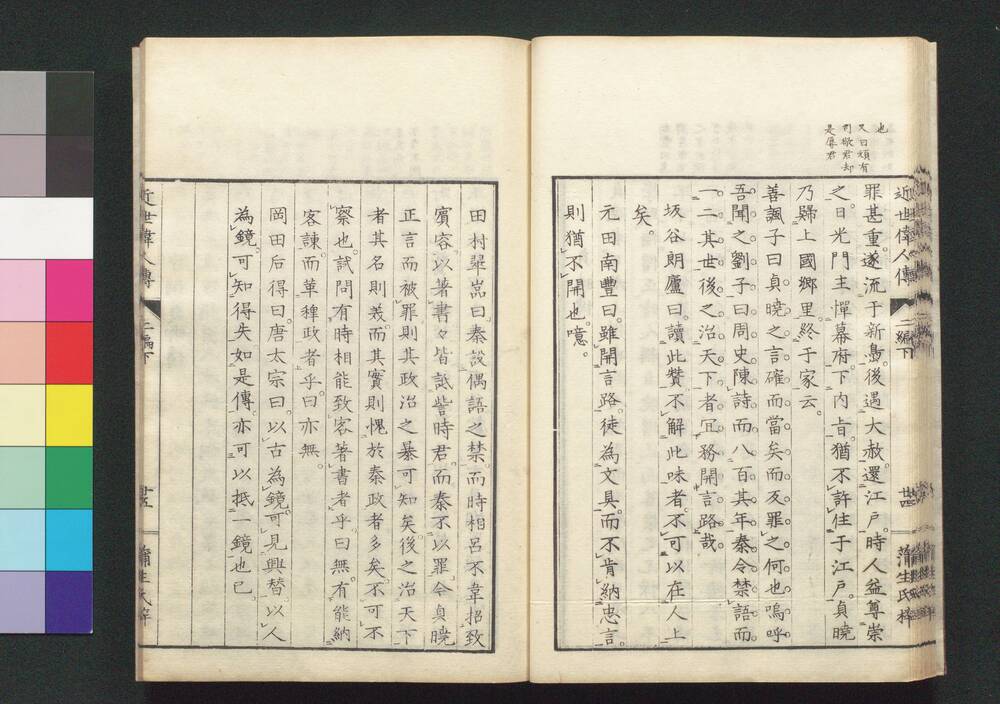 也
又曰頌有
刑欲君却
是辱君
近世偉人傳
二編下
廿四
蒲生氏梓
罪甚重。遂流于新島。後遇大赦。還江戸。時人益尊崇
之日光門主憚幕府。下内旨。猶不許住于江戸。貞曉
乃歸上國鄉里。終于家云。
善諷子曰貞曉之言確而當矣而及罪之何也嗚呼
吾聞之劉子曰周史陳詩而八百其年秦令禁語而
一二其世後之治天下者冝務開言路哉
坂谷朗廬曰。讀此贊不解此味者。不可以在人上
矣。
元田南豐曰。雖開言路。徒為文具。而不肯納忠言。
則猶不開也。噫。
田村犖嵓曰。秦設偶語之禁。而時相呂不韋招致
賓客。以著書。々皆詆訾時君。而秦不以罪。今貞曉
正言而被罪則其政治之暴可知矣後之治天下
者其名則義。而其實則愧於秦政者多矣。不可不
察也。試問有時相能致客著書者乎。曰無。有能納
客諫。而革秕政者乎。曰亦無。
岡田后得曰。唐太宗曰。以古為鏡。可見興替。以人
為鏡。可知得失。如是傳。亦可以抵一鏡也已。
近世偉人傳
二編下
廿五
蒲生氏梓